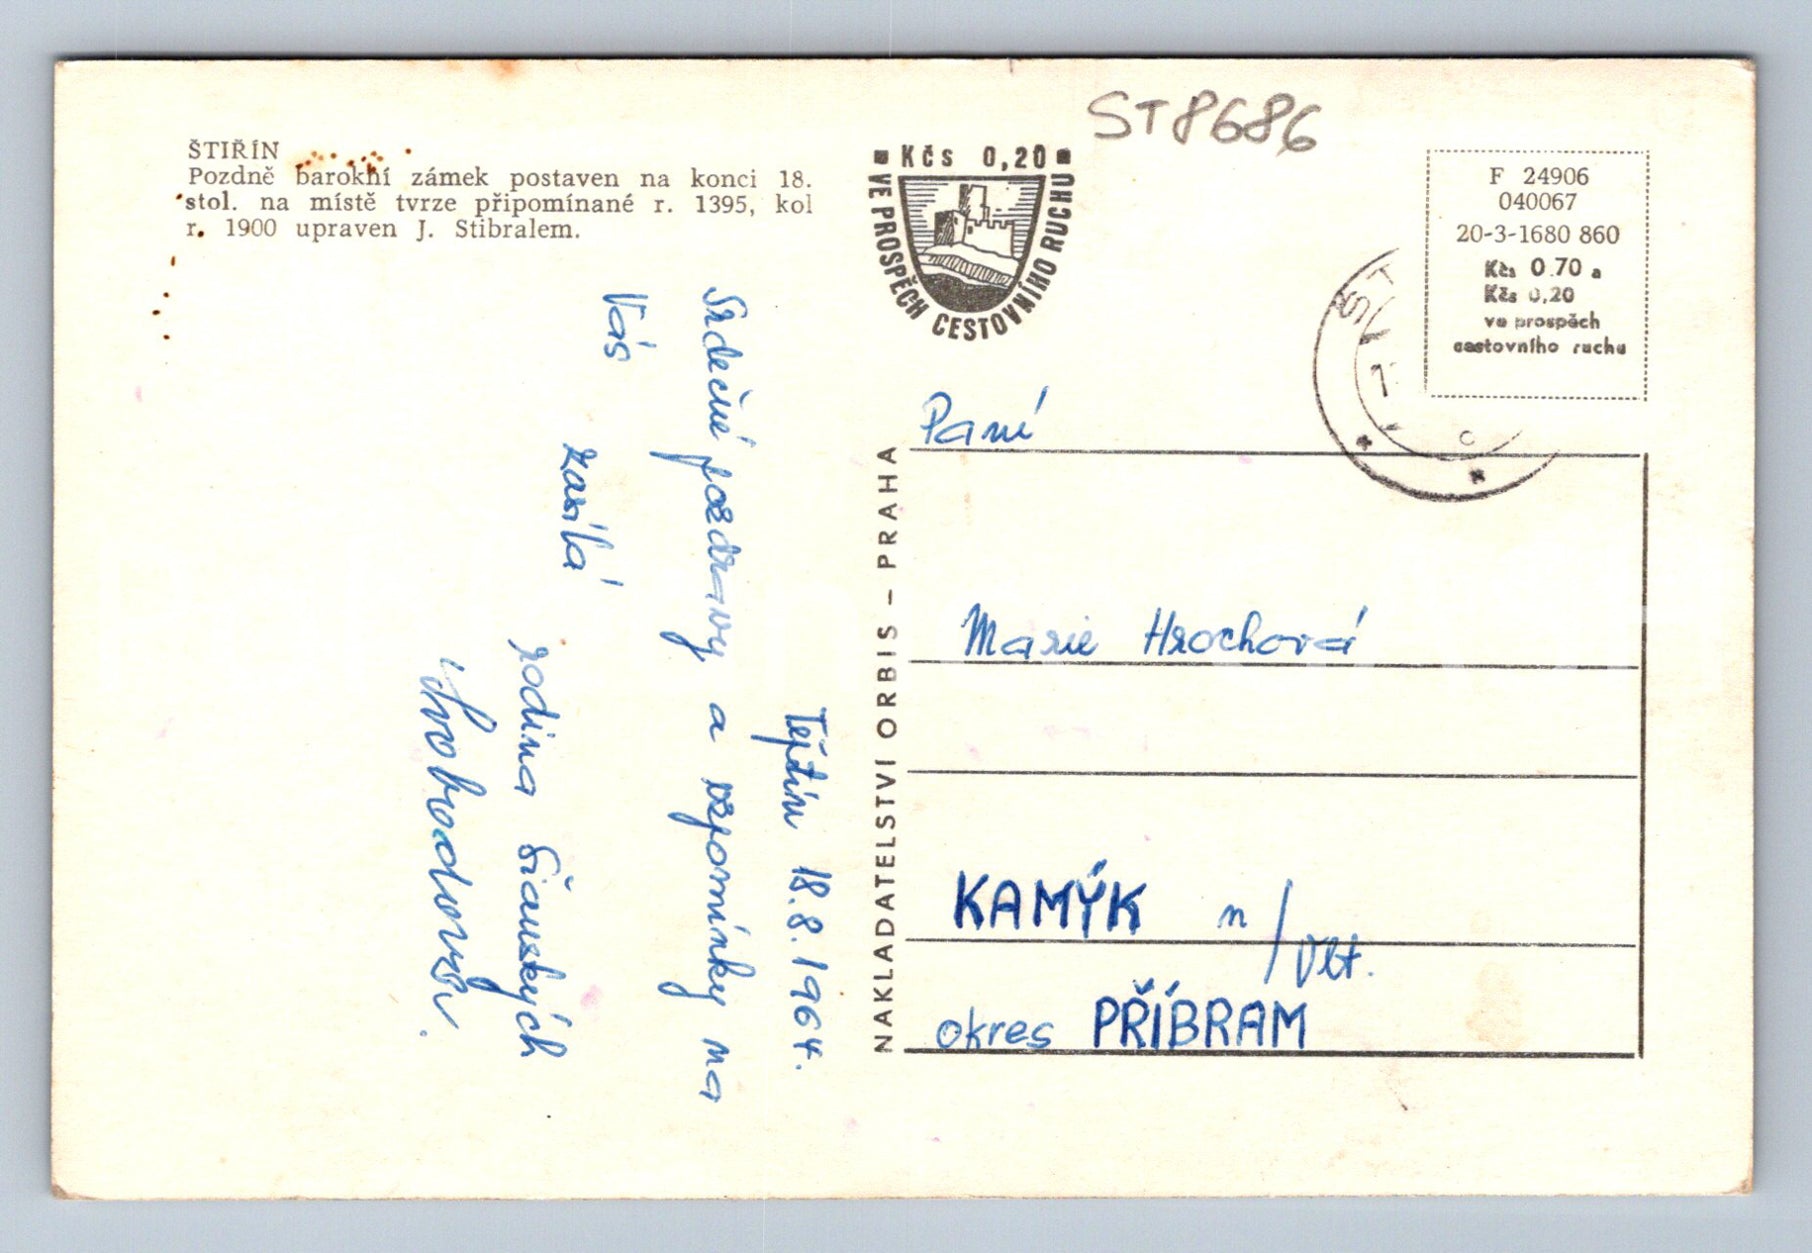 ŠTIŘÍN
Pozdně barokní zámek postaven na konci 18.
stol. na místě tvrze připomínané r. 1395, kol
r. 1900 upraven J. Stibralem.
ST8686
Kčs 0,20
VE PROSPĚCH CESTOVNÍHO RUCHU
F 24906
040067
20-3-1680 860
Kčs 0.70 a
Kčs 0,20
ve prospěch
cestovního ruchu
Tejtín 18.8.1964.
Srdečné pozdravy a vzpomínky na
Vás
zasílá
rodina
Svobodovi.
NAKLADATELSTVÍ ORBIS – PRAHA
Paní
Marie Hrochová
KAMÝK n/Vlt.
okres PŘÍBRAM